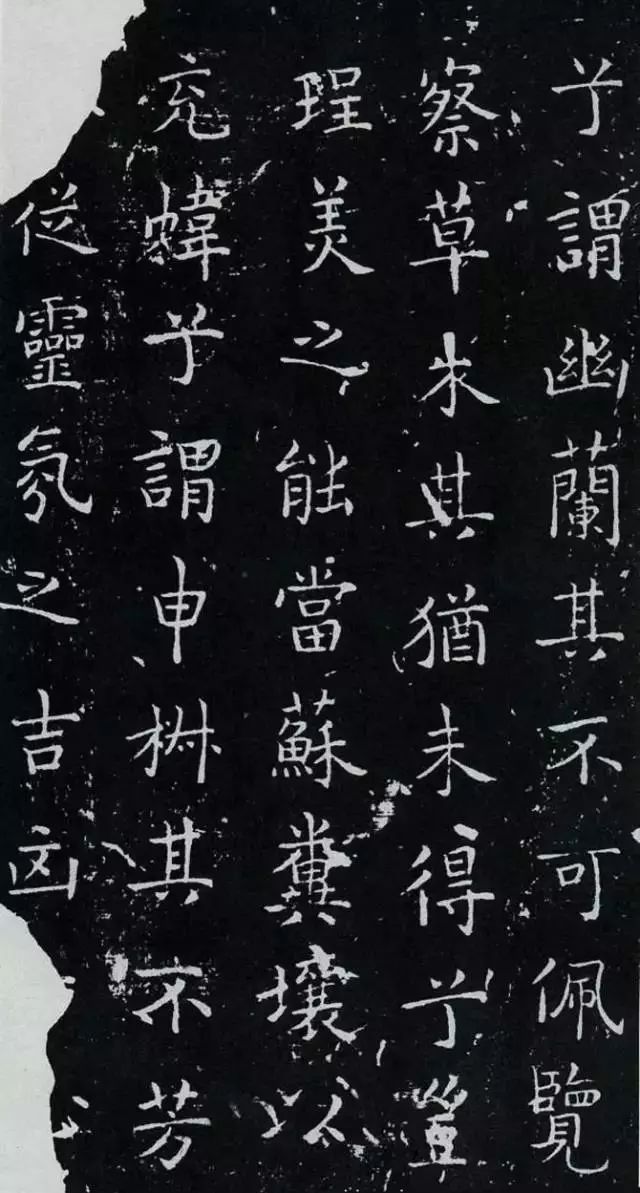 兮謂幽蘭其不可佩覽
察草木其猶未得兮豈
珵美之能當蘇糞壤以
充幃兮謂申椒其不芳
從靈氛之吉